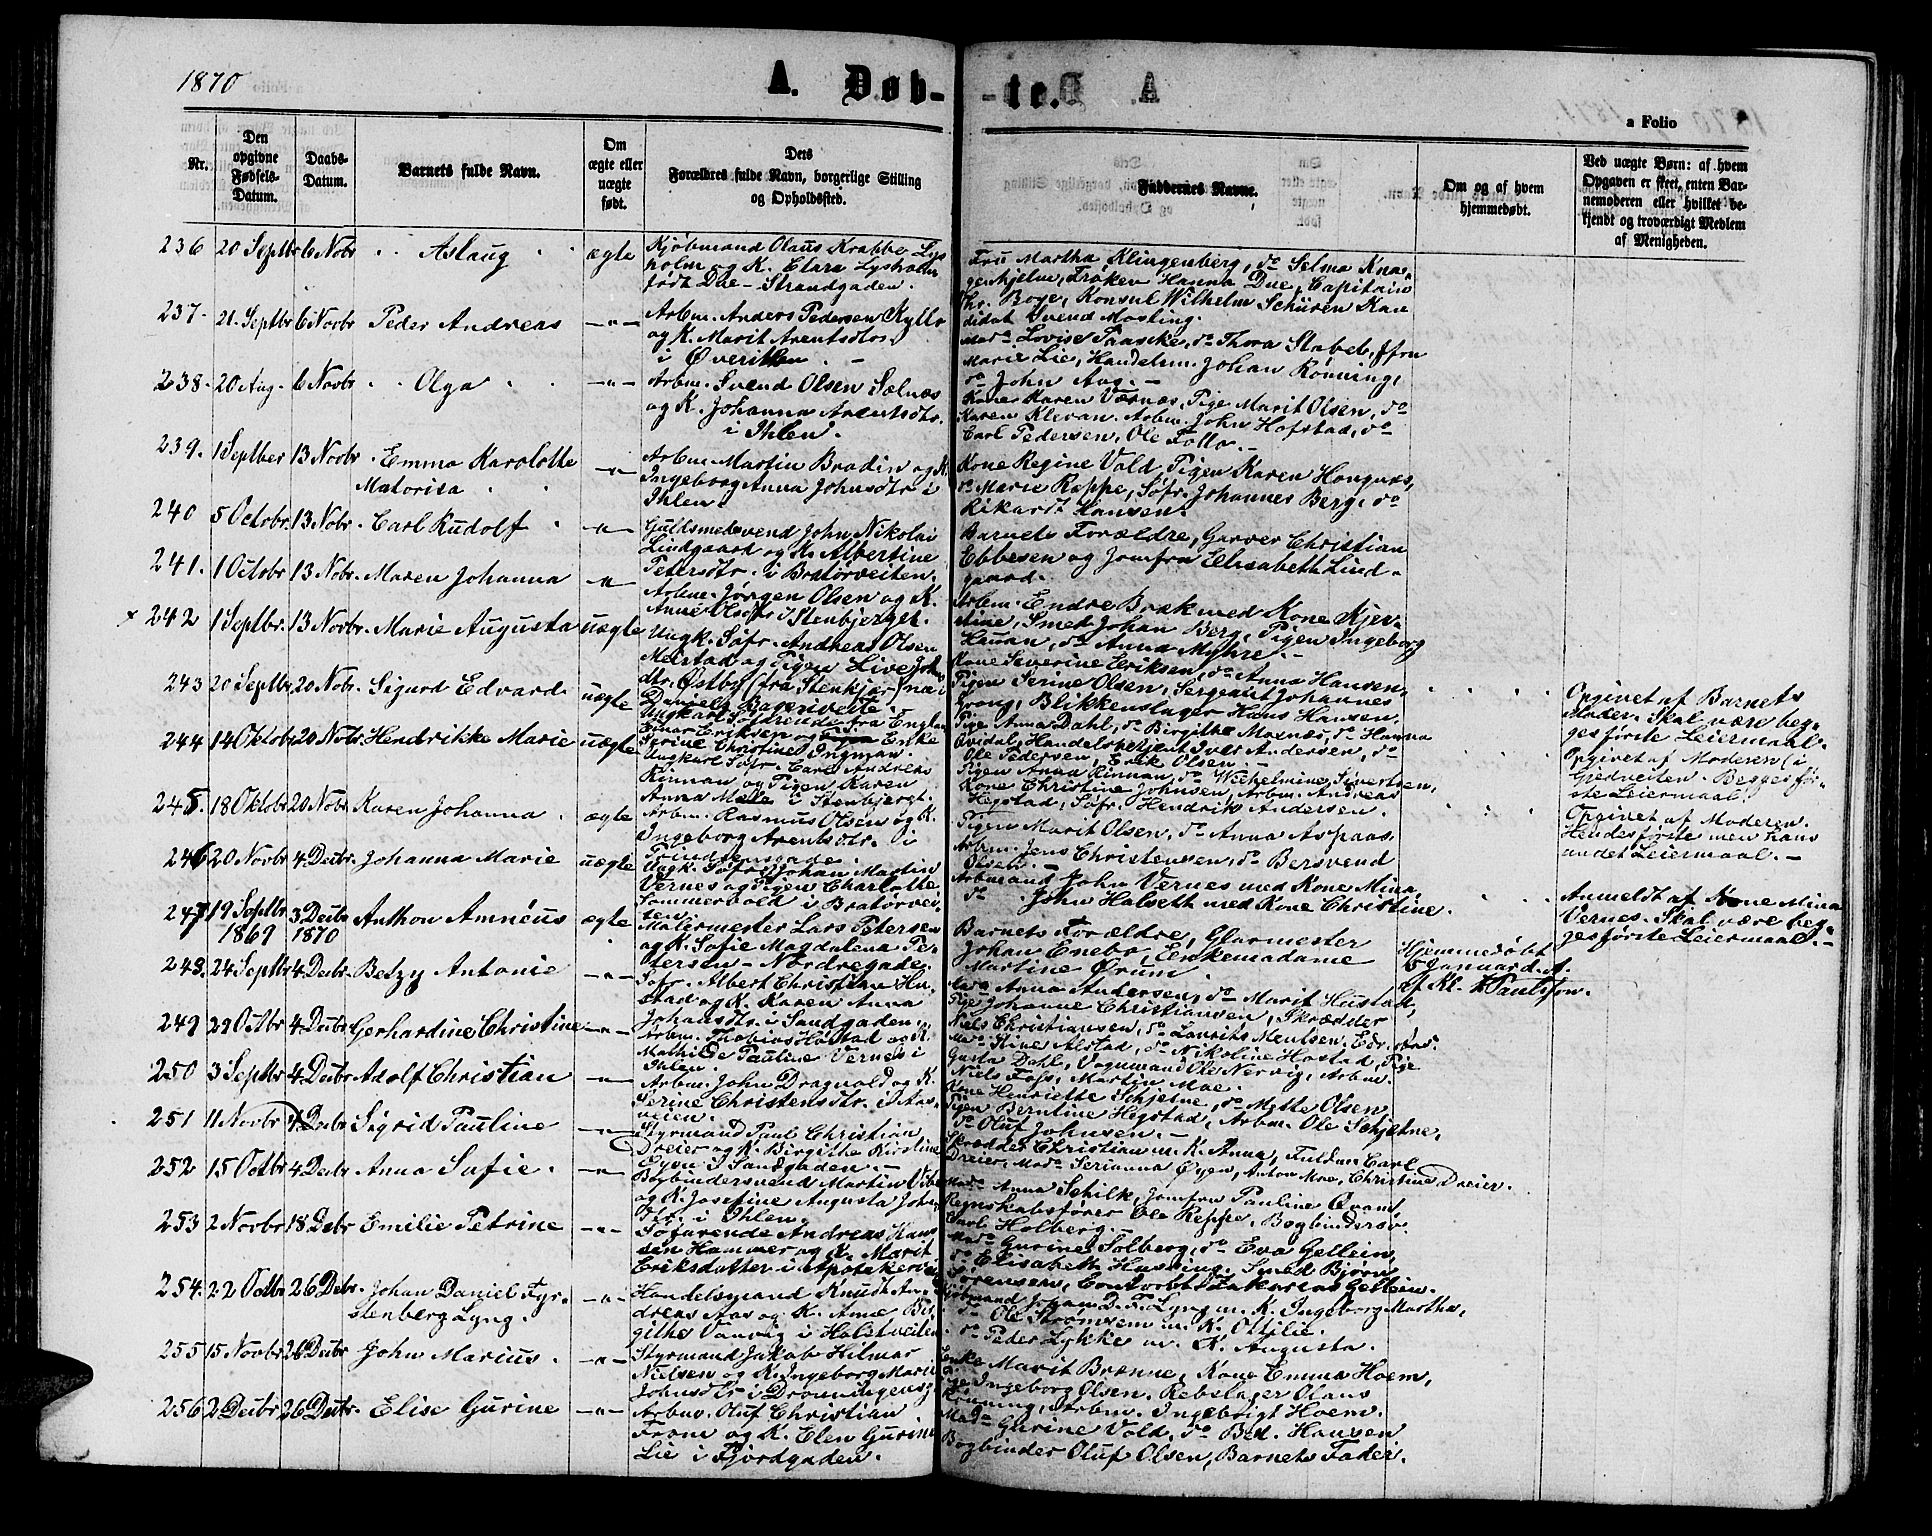 1870
A. Døb-te.
a Folio
Nr.
Den opgivne Fødsels-Datum.
Daabs-Datum.
Barnets fulde Navn.
Om ægte eller uægte født.
Dets Forældres fulde Navn, borgerlige Stilling og Opholdssted.
Faddernes Navne.
Om og af hvem hjemmedøbt.
Ved uægte Børn: af hvem Opgaven er skeet, enten Barnemoderen eller hvilket bekjendt og troværdigt Medlem af Menigheden.
236 20 Septbr 6 Novbr Aslaug ægte
Kjøbmand Olaus Krabbe Lys-
holm og K. Clara Lysholm
født Due - Strandgaden.
Fru Martha Klingenberg, do Selma Kna-
genhjelm, Frøken Hanna Due, Capitain
Thr. Boye, Konsul Wilhelm Schüren Kan
didat Svend Mosling.
237. 21. Septbr 6 Novbr Peder Andreas —"—
Arbm. Anders Pedersen Kylle
og K. Marit Arentsdtr.
i Øverihlen. —
Mad. Lovise Saaske, do Thora Stabel, Jfru
Marie Lie, Handelsm. Johan Rønning,
do John Aag. —
238. 20 Aug. 6 Novbr Olga —"—
Arbm. Svend Olsen Selnæs
og K. Johanna Arentsdtr.
i Ihlen.
Kone Karen Værnæs, Pige Marit Olsen, do
Karen Klevan. Arbm. John Hofstad, do
Carl Pedersen, Ole Follo. —
239. 1 Septber 13 Novbr Emma Karolotte
Matorisa —"—
Arbm. Martin Brodin og K.
Ingeborg Anna Johnsdtr i
Ihlen.
Kone Regine Vold, Pigen Karen Hongnæs,
do Marie Reppe, Søfr. Johannes Berg, do
Rikardt Hansen.
240 5 Octobr. 13 Nobr. Carl Rudolf —"—
Guldsmedsvend John Nikolai
Lindgaard og K. Albertine
Petersdtr. i Bratørveiten.
Barnets Forældre, Garver Christian
Ebbesen og Jomfru Elisabeth Lind-
gaard.
241. 1 Octobr 13 Nobr. Maren Johanna —"—
Arbm. Jørgen Olsen og K.
Anne Olsdtr i Stenbjerget.
Arbm. Endre Bræk med Kone Kjer-
stine, Smed Johan Berg, Pigen Ingeborg
Hauan, do Anna Myhre. —
242 1 Septbr. 13 Novbr. Marie Augusta uægte
Ungk. Søfr. Andreas Olsen
Melstad og Pigen Live Joh
dtr. Østby (fra Stenkjær) na i
Daniels Bagerveite. —
Kone Severine Eriksen, do Anna Hansen,
Pigen Serine Olsen, Sergeant Johannes
Grong, Blikkenslager Hans Hansen.
Opgivet af Barnets
Moder. Skal være beg-
ges første Leiermaal.
243 20 Septbr 20 Nobr. Sigurd Edvard uægte
Ungkarl Søfarende fra Englan
Einar Eriksen og Enke
Serine Christine Ingman i
Pige Anna Dahl, do Birgithe Moxnæs, do Hanna
Qvidal, Handelsbetjent Iver Andersen, do
Ole Pedersen, Erik Olsen. —
Opgivet af Moderen (i
Gjedveiten. Begges før-
ste Leiermaal.
244 14 Oktobr 20 Nobr. Hendrikke Marie uægte
Ungkarl Søfr. Carl Andreas
Rinnan og Pigen Karen
Anna Melle i Stenbjerget.
Pigen Anna Rinnan, do Wilhelmine Sivertsen,
Kone Christine Johnsen, Arbm. Andreas
Hegstad, Søfr. Hendrik Anderse.
Opgivet af Moderen.
Hendes første men hans
andet Leiermaal. —
245. 18 Oktobr 20 Nobr. Karen Johanna ægte
Arbm. Rasmus Olsen og K.
Ingeborg Arentsdtr. i
Pigen Marit Olsen, do Anna Aspaas
Arbm. Jens Christensen, do Bersvend
Olsen. —
246 20 Novbr 4 Decbr. Johanna Marie uægte
Ungk. Søfr. Johan Martin
Vernes og Pigen Charlotte
Sommervold i Bratørvei-
ten.
Arbmand John Vernes med Kone Mina,
do John Halseth med Kone Christine.
Anmeldt af Kone Mina
Vernes. Skal være beg-
ges første Leiermaal. —
247 19 Septbr 1869 3 Decbr 1870 Anthon Amnéus ægte
Malermester Lars Petersen
og K. Sofie Magdalena Pe-
tersen - Nordregade.
Barnets Forældre, Glarmester
Johan Enebo, Enkemadame
Martine Ørum.
Hjemmedøbt
5 Januar d. A.
af Kl. Paulsson.
248. 24 Septbr 4 Decbr. Betzy Antonie —"—
Søfr. Albert Christian Hu-
stad og K. Karen Anna
Johansdtr. i Sandgaden.
Mad. Anna Andersen, do Marit Hustad,
Pige Johanne Christiansen, Skrædder
Niels Christiansen, do Laurits Mentsen.
249 29 Octbr 4 Decbr. Gerhardine Christine —"—
Arbm. Thobias Hostad og K.
Mathilde Pauline Vernes i
Ihlen.
Mad. Stine Alstad, do Nikoline Hostad, Pige
Gusta Dahl, Vognmand Ole Nervig, Arbm.
Niels Foss, Martin Moe.
250 3 Septbr 4 Decbr Adolf Christian —"—
Arbm. John Dragvold og K.
Serine Christensdtr. i Aas-
veien.
Kone Henriette Schjetne, do Mette Olsen
Pigen Berntine Hegstad, Arbm. Ole Schjetne,
do Oluf Johnsen. —
251 11 Novbr 4 Decbr Sigrid Pauline —"—
Styrmand Paul Christian
Dreier og K. Birgithe Kirstine
Eyen i Sandgaden. —
Skrædder Christian m. K. Anna, Fuldm. Carl
Dreier, Mad. Serianna Øyen, Anton Moe, Christine Dreier.
252 15 Octbr 4 Decbr Anna Sofie. —"—
Bogbindersvend Martin Vibe
og K. Josefine Augusta Johns
dtr. i Ihlen.
Mad. Anna Schilk, Jomfru Pauline Qvam,
Regnskabsfører Ole Reppe, Bogbindersv.
Carl Holberg. —
253 2 Novbr 18 Debr Emilie Petrine —"—
Søfarende Andreas Han-
sen Hammer og K. Marit
Eriksdatter i Apothekerv
Mad. Gurine Solberg, do Eva Gellein,
do Elisabeth Hussing, Smed Bjørn
Sørensen, Contorbt. Zakarias Gellein.
254. 22 Octbr 26 Debr. Johan Daniel Fyr-
stenberg Lyng. —"—
Handelsmand Knudt An-
dreas Aas og K. Anne Bir
githe Vanvig i Holstveiten.
Johan D. F. Lyng m. K. Ingeborg Martha,
do Ole Stroomsem m. K. Ottilie.
do Peder Lykke m. K. Augusta.
255 15 Novbr 26 Decbr John Marius. —"—
Styrmand Jakob Hilmar
Nielsen og K. Ingeborg Marie
Johnsdtr i Dronningensg.
Enke Marit Brenne, Kone Emma Hoem,
Pige Ingeborg Olsen, Rebslager Olaus
Rønning, Arbm. Ingebrigt Hoem.
256 2 Decbr 26 Decbr. Elise Gurine —"—
Arbm. Oluf Christian
Frone og K. Elen Gurine
Lie i Fjordgaden.
Mad. Gurine Vold, do Bed. Hansen
Bogbinder Oluf Olsen, Barnets Fader.